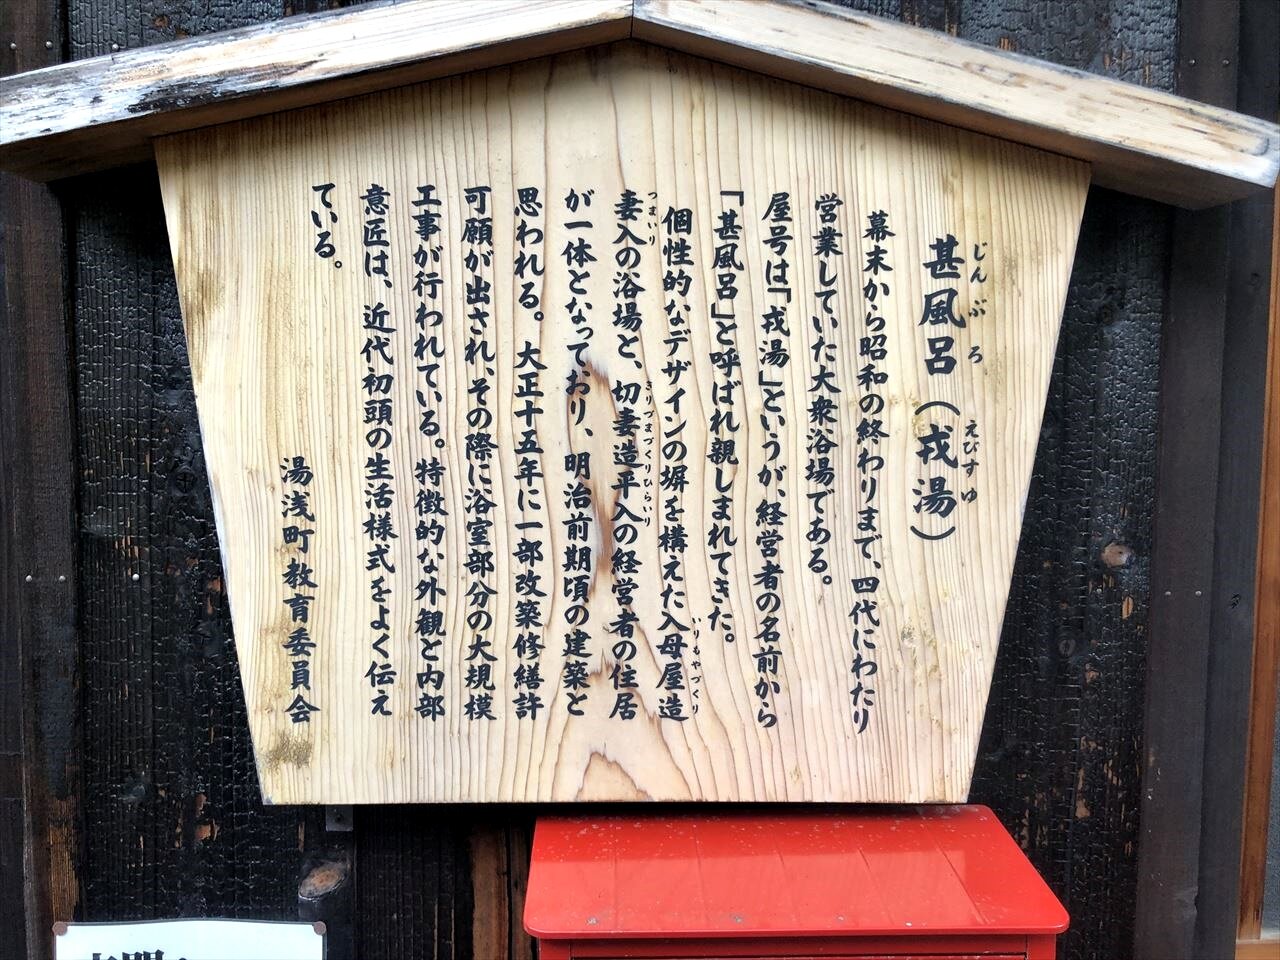 甚風呂（戎湯）
じんぶろ
えびすゆ
幕末から昭和の終わりまで、四代にわたり
営業していた大衆浴場である。
屋号は「戎湯」というが、経営者の名前から
「甚風呂」と呼ばれ親しまれてきた。
個性的なデザインの塀を構えた入母屋造
いりもやづくり
妻入の浴場と、切妻造平入の経営者の住居
つまいり
きりづまづくりひらいり
が一体となっており、明治前期頃の建築と
思われる。大正十五年に一部改築修繕許
可願が出され、その際に浴室部分の大規模
工事が行われている。特徴的な外観と内部
意匠は、近代初頭の生活様式をよく伝え
ている。
湯浅町教育委員会